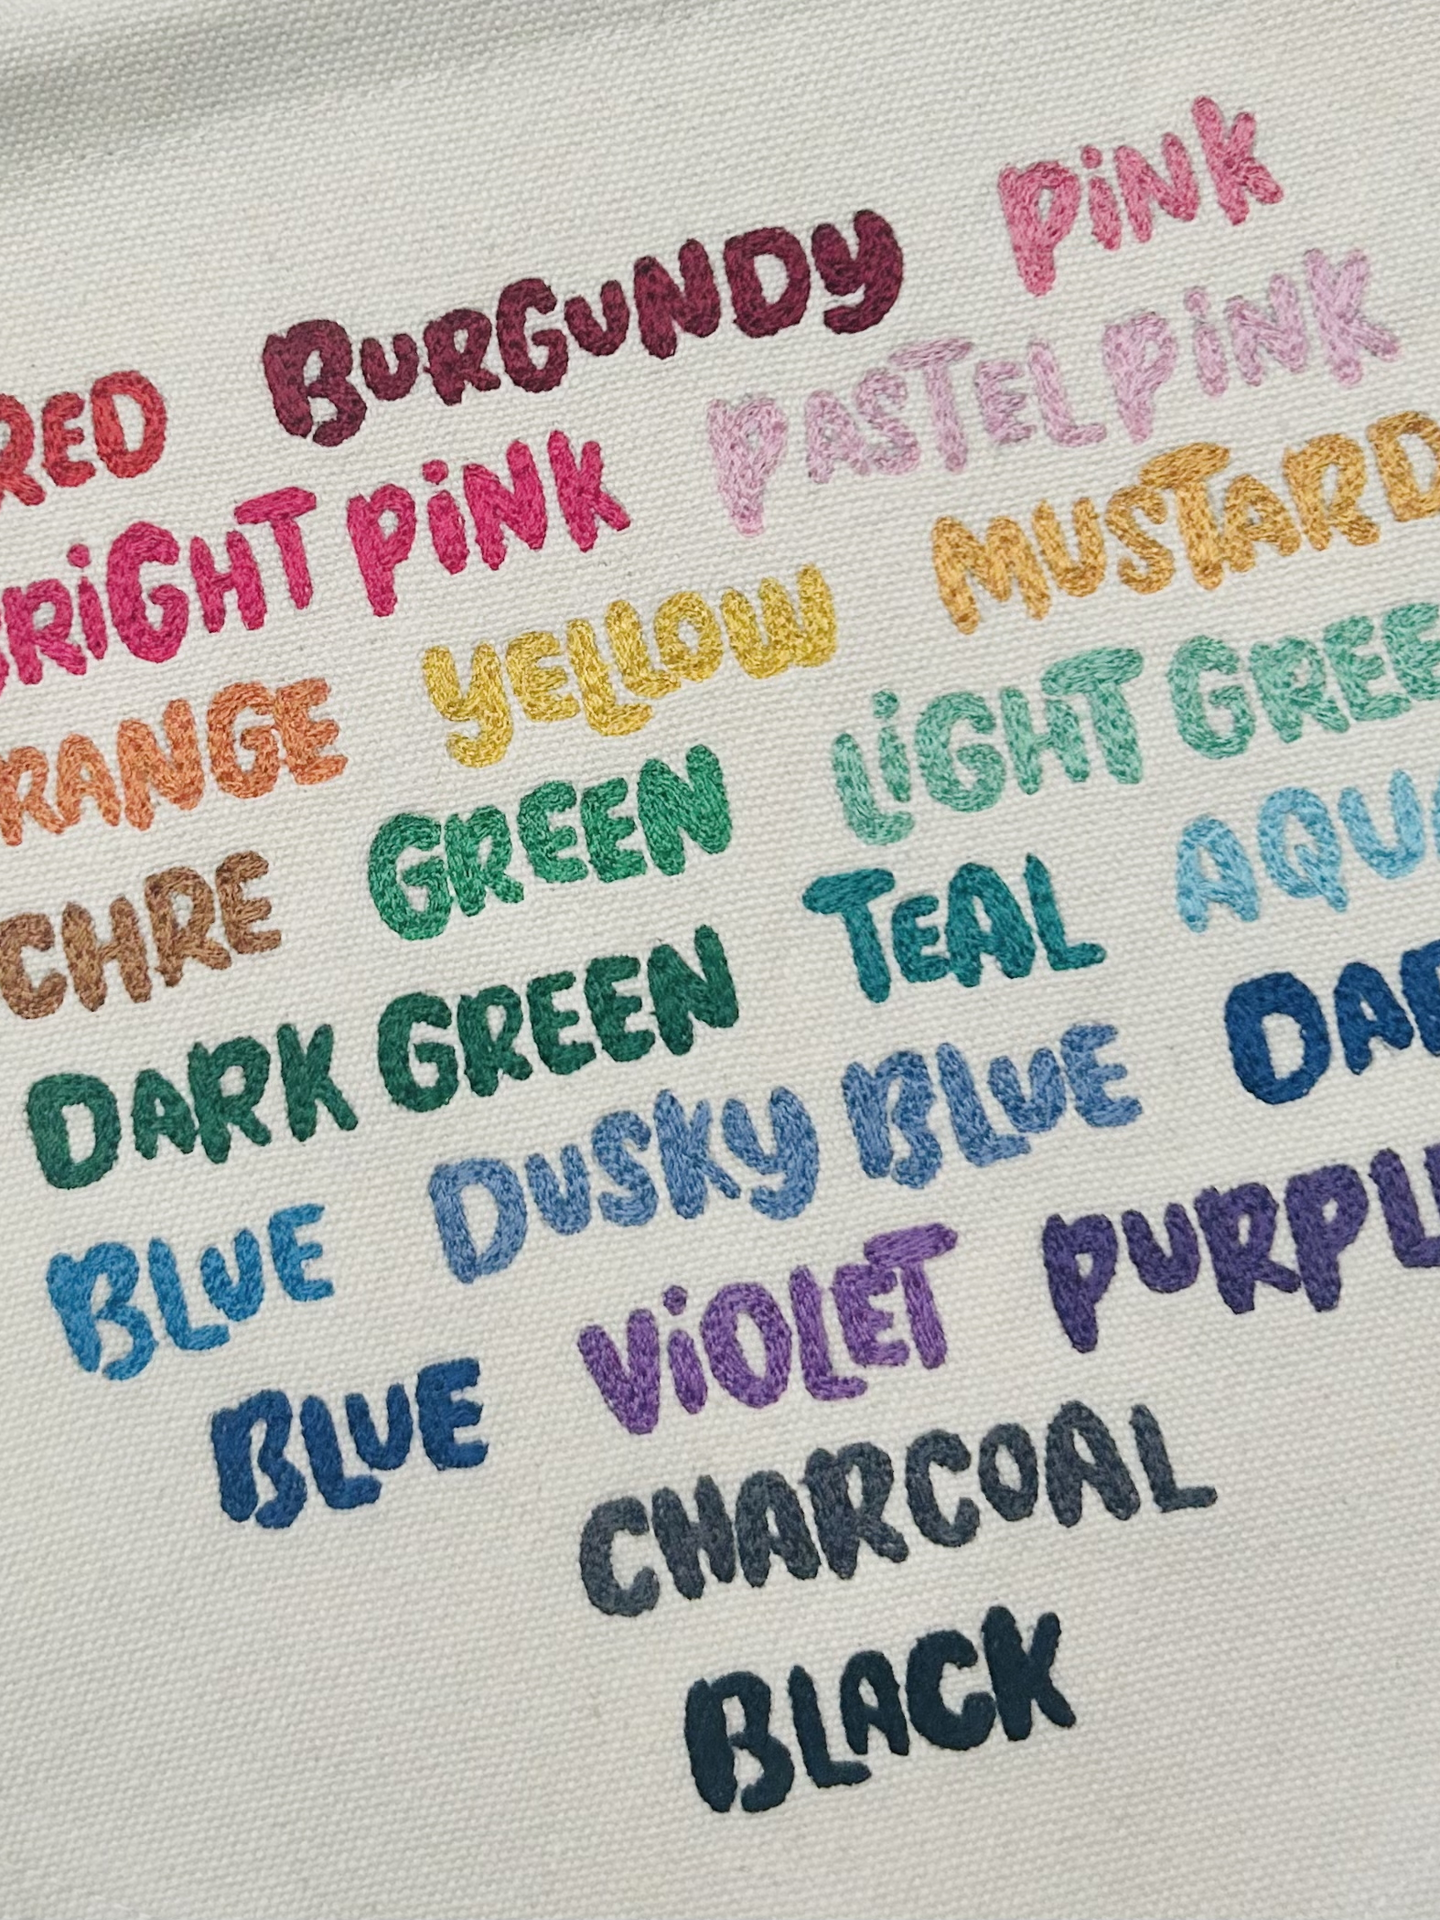 RED BURGUNDY PINK
BRIGHT PINK PASTEL PINK
RANGE YELLOW MUSTARD
CHRE GREEN LIGHT GREE
DARK GREEN TEAL AQUA
BLUE DUSKY BLUE DAR
BLUE VIOLET PURPL
CHARCOAL
BLACK